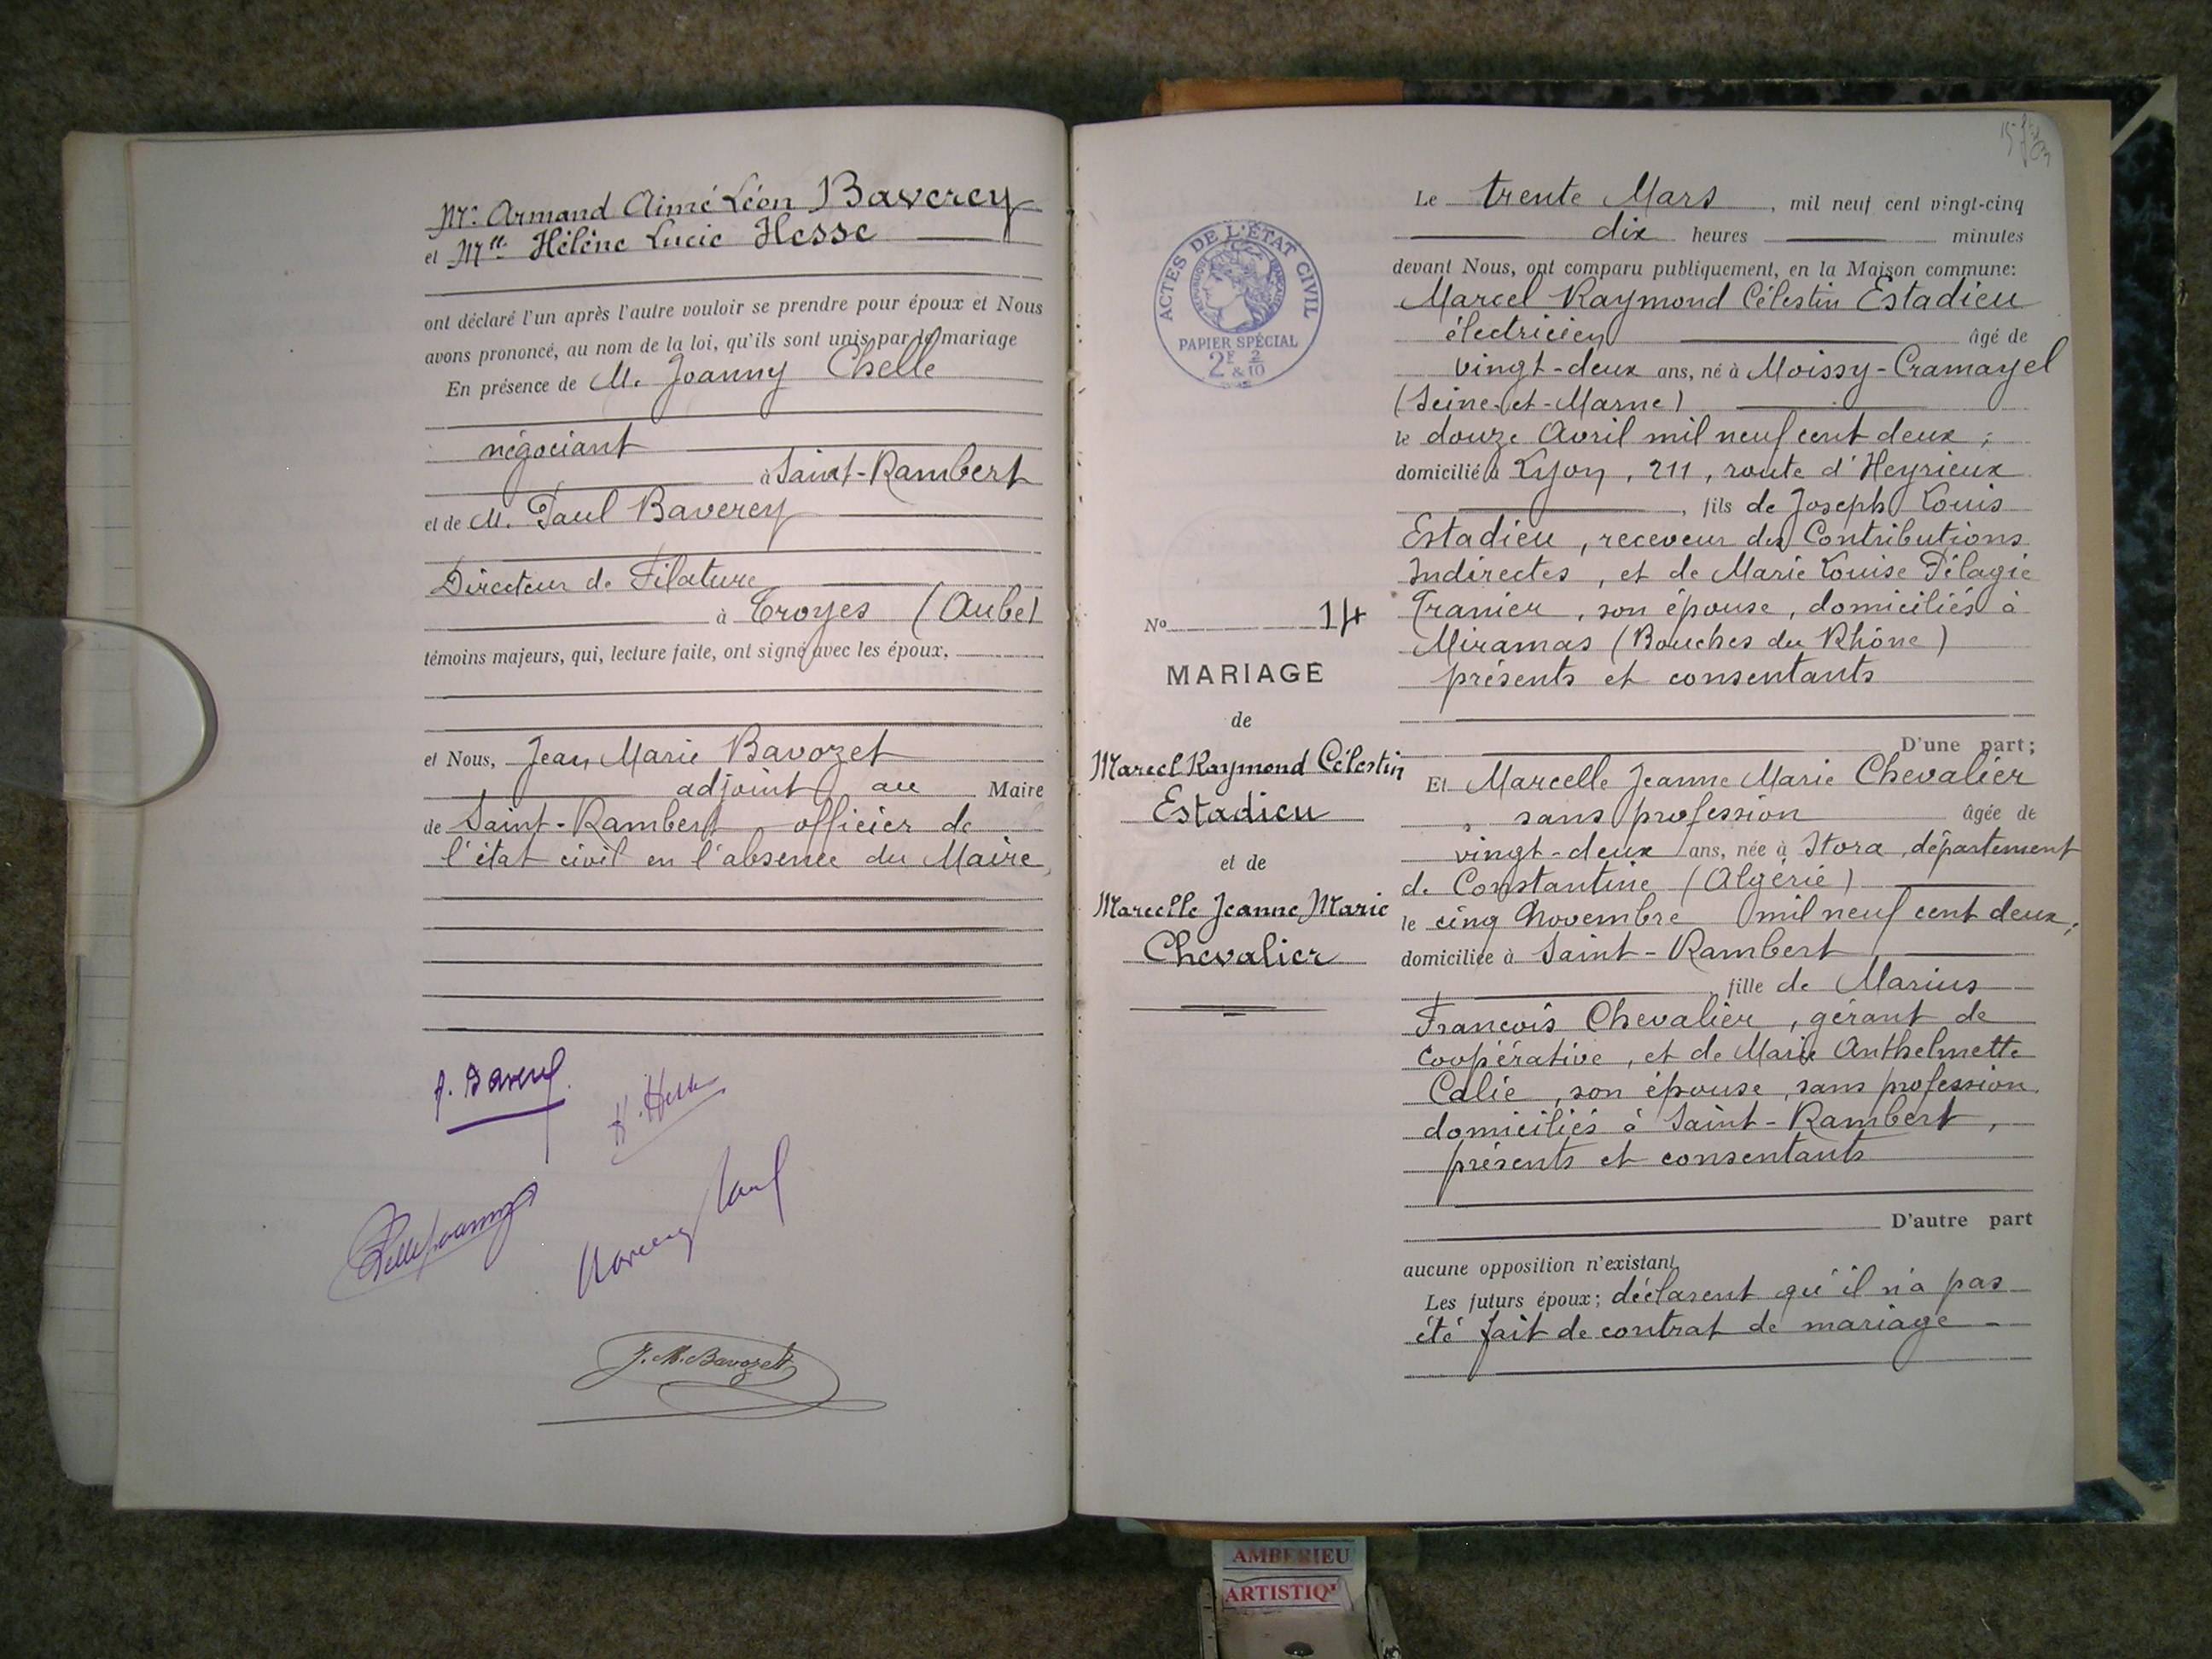 Mr. Armand Aimé Léon Baverey
et Mlle Hélène Lucie Hesse
ont déclaré l'un après l'autre vouloir se prendre pour époux et Nous
avons prononcé, au nom de la loi, qu'ils sont unis par le mariage
En présence de M. Joanny Chelle
négociant
à Saint-Rambert
et de M. Paul Baverey
Directeur de Filature
à Troyes (Aube)
témoins majeurs, qui, lecture faite, ont signé avec les époux,
et Nous, Jean Marie Bavozet
adjoint au Maire
de Saint-Rambert officier de
l'état civil en l'absence du Maire
H. Hesse
J. M. Bavozet
ACTES DE L'ÉTAT CIVIL
RÉPUBLIQUE FRANÇAISE
PAPIER SPÉCIAL
2F & 2/10
No 14
MARIAGE
de
Marcel Raymond Célestin
Estadieu
et de
Marcelle Jeanne Marie
Chevalier
Le trente Mars, mil neuf cent vingt-cinq
dix heures minutes
devant Nous, ont comparu publiquement, en la Maison commune:
Marcel Raymond Célestin Estadieu
électricien âgé de
vingt-deux ans, né à Moissy-Cramayel
(Seine-et-Marne)
le douze Avril mil neuf cent deux;
domicilié à Lyon, 211, route d'Heyrieux
, fils de Joseph Louis
Estadieu, receveur des Contributions
Indirectes, et de Marie Louise Pélagie
Granier, son épouse, domiciliés à
Miramas (Bouches du Rhône)
présents et consentants
D'une part;
Et Marcelle Jeanne Marie Chevalier
, sans profession âgée de
vingt-deux ans, née à Stora, département
de Constantine (Algérie)
le cinq Novembre mil neuf cent deux;
domiciliée à Saint-Rambert
, fille de Marius
François Chevalier, gérant de
coopérative, et de Marie Anthelmette
Calie, son épouse, sans profession
domiciliés à Saint-Rambert,
présents et consentants
D'autre part
aucune opposition n'existant
Les futurs époux; déclarent qu'il n'a pas
été fait de contrat de mariage -
AMBERIEU
ARTISTIQ'